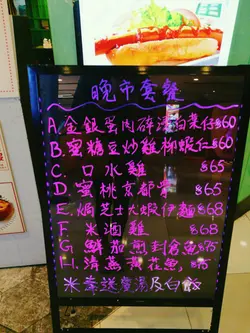 晚市套餐
A.金銀蛋肉碎浸白菜仔$60
B.蜜糖豆炒雞柳蝦仁$60
C.口水雞 $65
D.蜜桃京都骨 $65
E.焗芝士大蝦伊麵$68
F.米酒雞 $68
G.鮮茄煎封倉魚$75
H.清蒸黃花魚,$75
※奉送餐湯及白飯